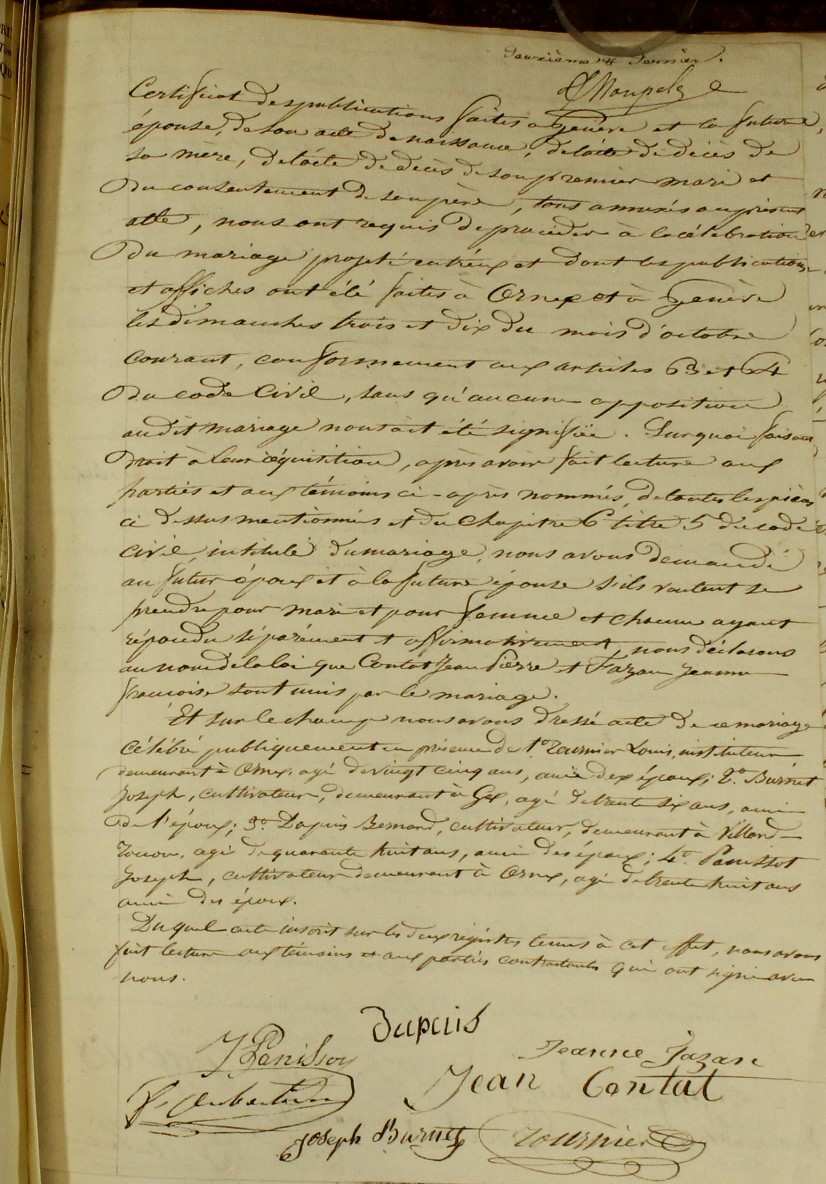 Certificat des publications faites à Genève et la future
épouse, de son acte de naissance, de l'acte de décès de
sa mère, de l'acte de décès de son premier mari et
du consentement de son père, tous annexés au présent
acte, nous ont requis de procéder à la célébration
du mariage projeté entr'eux et dont les publications
et affiches ont été faites à Ornex et à Genève
les dimanches trois et dix du mois d'octobre
courant, conformément aux articles 63 et 64
du code Civil, sans qu'aucune opposition
audit mariage nous ait été signifiée. Sur quoi faisant
droit à leur réquisition, après avoir fait lecture aux
parties et aux témoins ci-après nommés, de toutes les pièces
ci dessus mentionnées et du chapitre 6 titre 5 du code
civil, intitulé du mariage, nous avons demandé
au futur époux et à la future épouse s'ils veulent se
prendre pour mari et pour femme et chacun ayant
répondu séparément et affirmativement, nous déclarons
au nom de la loi que Contat Jean Pierre et Fazan Jeanne
françoise sont unis par le mariage.
Et sur le champ nous avons dressé acte de ce mariage
célébré publiquement en présence de 1º Tournier Louis, instituteur
demeurant à Ornex, agé de vingt cinq ans, ami des époux; 2º Burnet
Joseph, cultivateur, demeurant à Gex, agé de trente six ans, ami
de l'époux; 3º Dupuis Bernard, cultivateur, demeurant à Villard-
agé de quarante huit ans, ami des époux; 4º Panissot
Joseph, cultivateur demeurant à Ornex, agé de trente huit ans
ami des époux.
Duquel acte inscrit sur les deux registres tenus à cet effet, nous avons
fait lecture aux témoins et aux parties contractants qui ont signé avec
nous.
Dupuis
J Panissot
Jeanne Fazan
Jean Contat
Joseph Burnet
Tournier